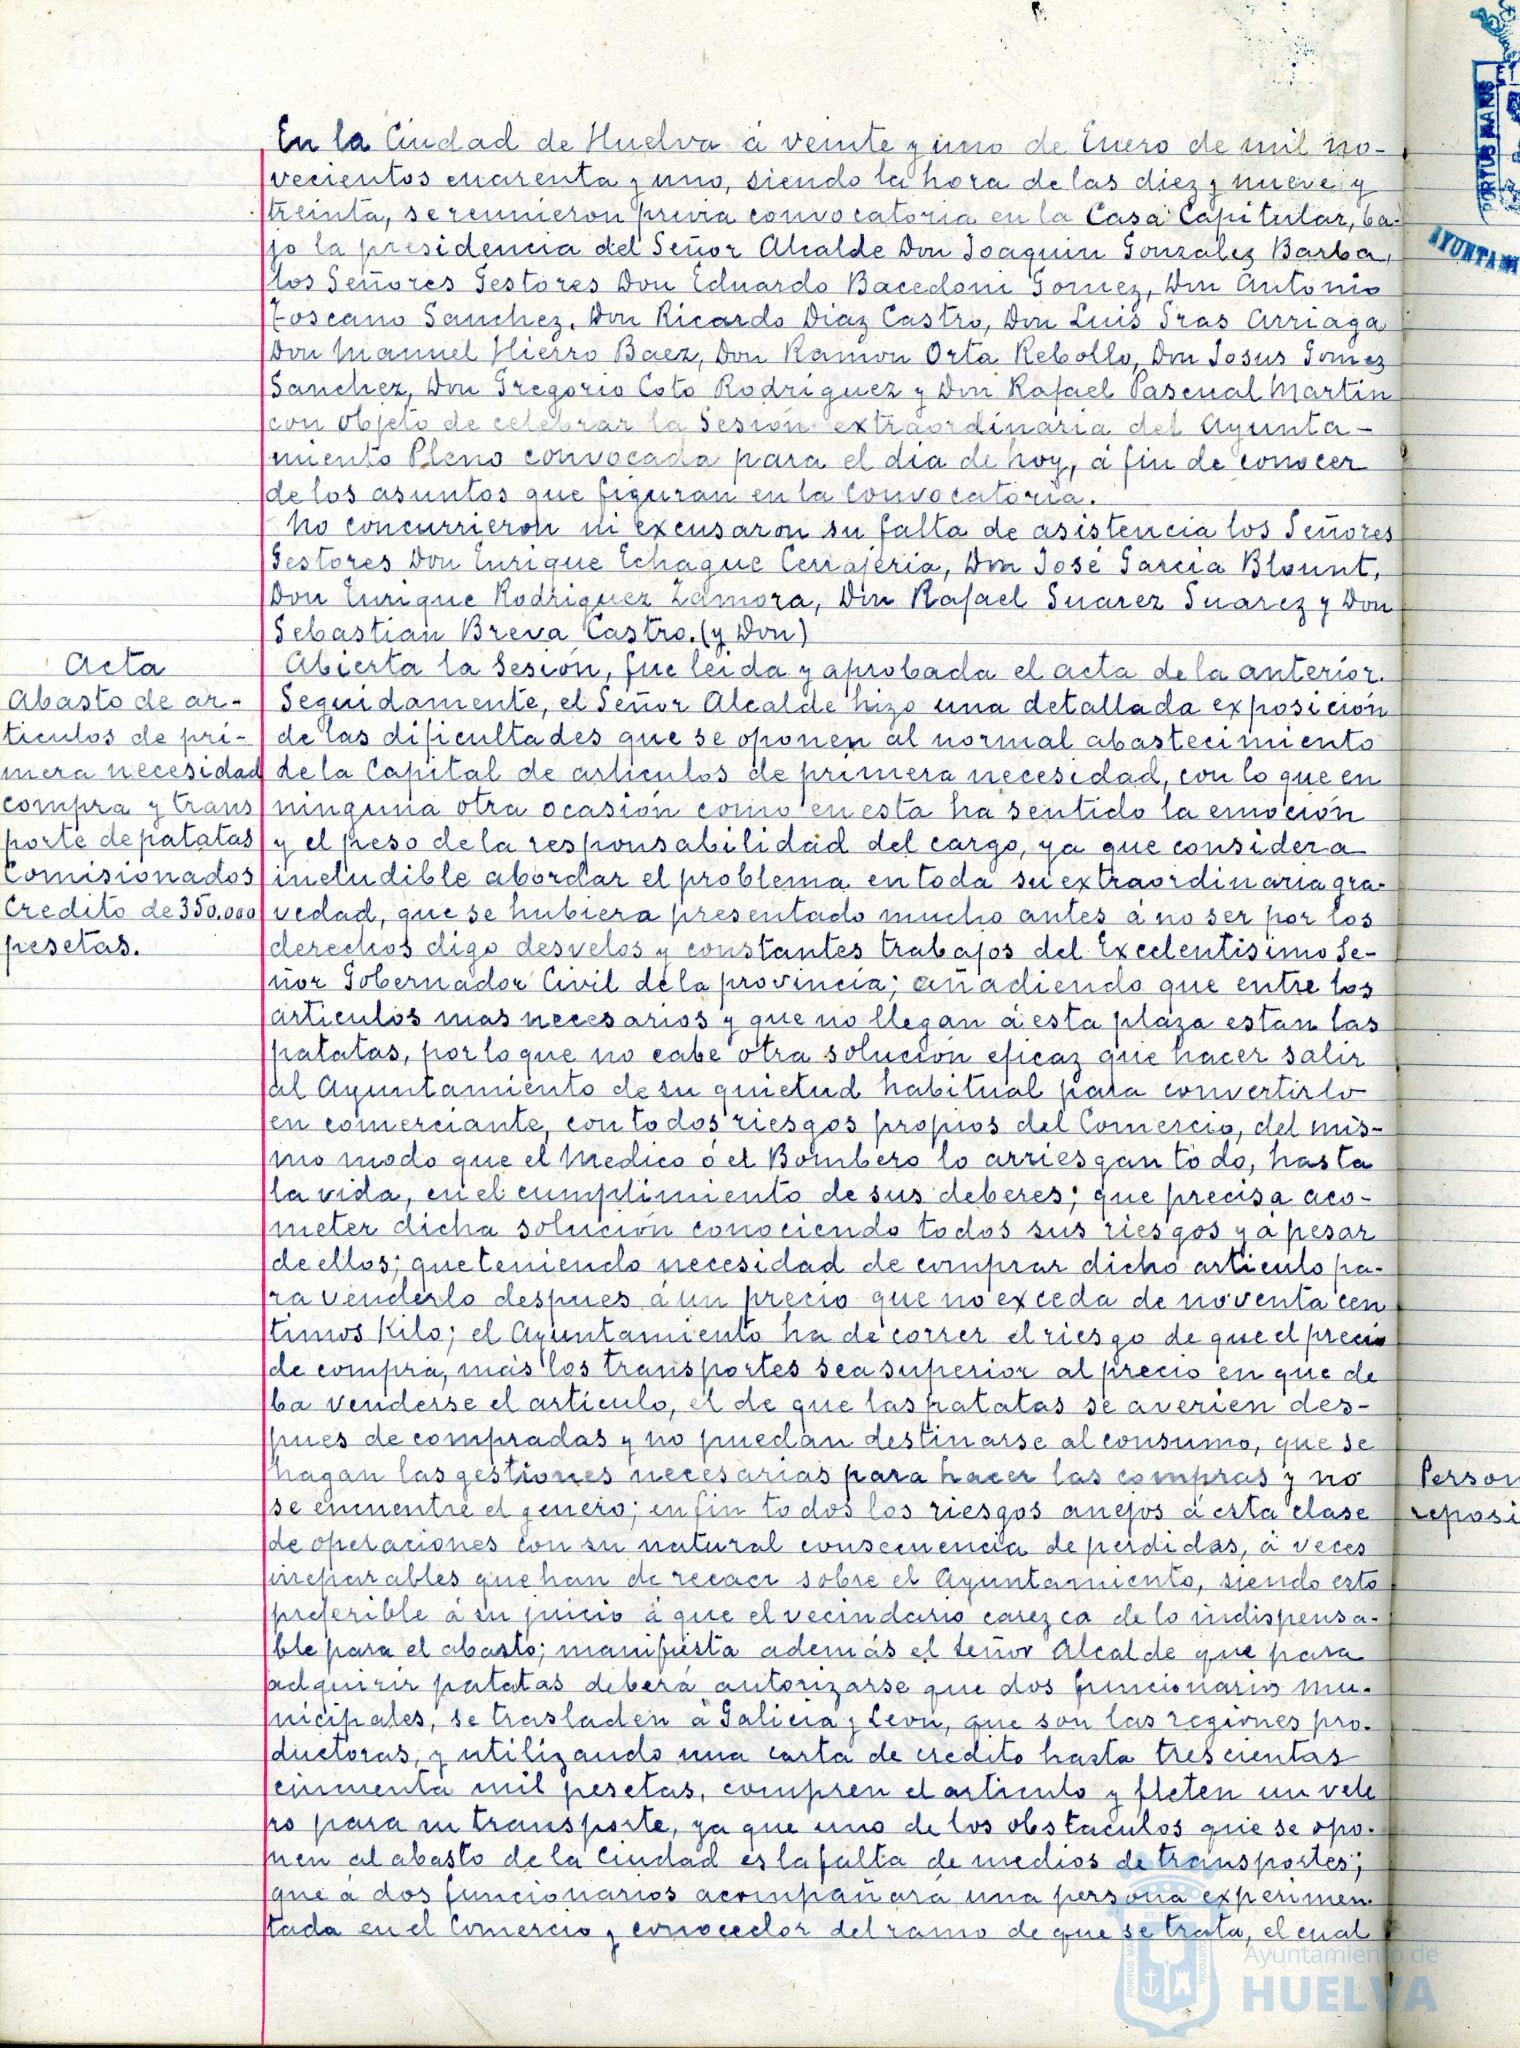 En la Ciudad de Huelva á veinte y uno de Enero de mil no-
vecientos cuarenta y uno, siendo la hora de las diez y nueve y
treinta, se reunieron previa convocatoria en la Casa Capitular, ba-
jo la presidencia del Señor Alcalde Don Joaquin Gonzalez Barba,
los Señores Gestores Don Eduardo Bacedoni Gomez, Don Antonio
Toscano Sanchez, Don Ricardo Diaz Castro, Don Luis Tras Arriaga
Don Manuel Hierro Baez, Don Ramon Orta Rebollo, Don Josus Gomez
Sanchez, Don Gregorio Coto Rodriguez y Don Rafael Pascual Martin
con objeto de celebrar la Sesión extraordinaria del Ayunta-
miento Pleno convocada para el dia de hoy, á fin de conocer
de los asuntos que figuran en la Convocatoria.
No concurrieron ni excusaron su falta de asistencia los Señores
Gestores Don Enrique Echague Cerrajeria, Don José Garcia Blount,
Don Enrique Rodriguez Zamora, Don Rafael Suarez Suarez y Don
Sebastian Breva Castro. (y Don)
Acta
Abasto de ar-
ticulos de pri-
mera necesidad
compra y trans
porte de patatas
Comisionados
Credito de 350.000
pesetas.
Abierta la Sesión, fue leida y aprobada el acta de la anterior.
Seguidamente, el Señor Alcalde hizo una detallada exposición
de las dificultades que se oponen al normal abastecimiento
de la Capital de articulos de primera necesidad, con lo que en
ninguna otra ocasión como en esta ha sentido la emoción
y el peso de la responsabilidad del cargo, ya que considera
ineludible abordar el problema en toda su extraordinaria gra-
vedad, que se hubiera presentado mucho antes á no ser por los
derechos digo desvelos y constantes trabajos del Excelentisimo Se-
ñor Gobernador Civil de la provincia; añadiendo que entre los
articulos mas necesarios y que no llegan á esta plaza estan las
patatas, por lo que no cabe otra solución eficaz que hacer salir
al Ayuntamiento de su quietud habitual para convertirlo
en comerciante, con todos riesgos propios del Comercio, del mis-
mo modo que el Medico ó el Bombero lo arriesgan todo, hasta
la vida, en el cumplimiento de sus deberes; que precisa aco-
meter dicha solución conociendo todos sus riesgos y á pesar
de ellos; que teniendo necesidad de comprar dicho articulo pa-
ra venderlo despues á un precio que no exceda de noventa cen
timos Kilo; el Ayuntamiento ha de correr el riesgo de que el precio
de compra, más los transportes sea superior al precio en que de
ba venderse el artículo, el de que las patatas se averien des-
pues de compradas y no puedan destinarse al consumo, que se
hagan las gestiones necesarias para hacer las compras y no
se encuentre el genero; en fin todos los riesgos anejos á esta clase
de operaciones con su natural consecuencia de perdidas, á veces
irreparables que han de recaer sobre el Ayuntamiento, siendo esto
preferible á su juicio á que el vecindario carezca de lo indispensa-
ble para el abasto; manifiesta además el Señor Alcalde que para
adquirir patatas deberá autorizarse que dos funcionarios mu-
nicipales, se trasladen á Galicia y Leon, que son las regiones pro-
ductoras, y utilizando una carta de credito hasta trescientas
cincuenta mil pesetas, compren el articulo y fleten un vele
ro para su transporte, ya que uno de los obstaculos que se opo-
nen al abasto de la Ciudad es la falta de medios de transportes;
que á dos funcionarios acompañará una persona experimen-
tada en el Comercio y conocedor del ramo de que se trata, el cual
PORTUS MARIS
AYUNTAMI
Person
reposi
Ayuntamiento de
HUELVA